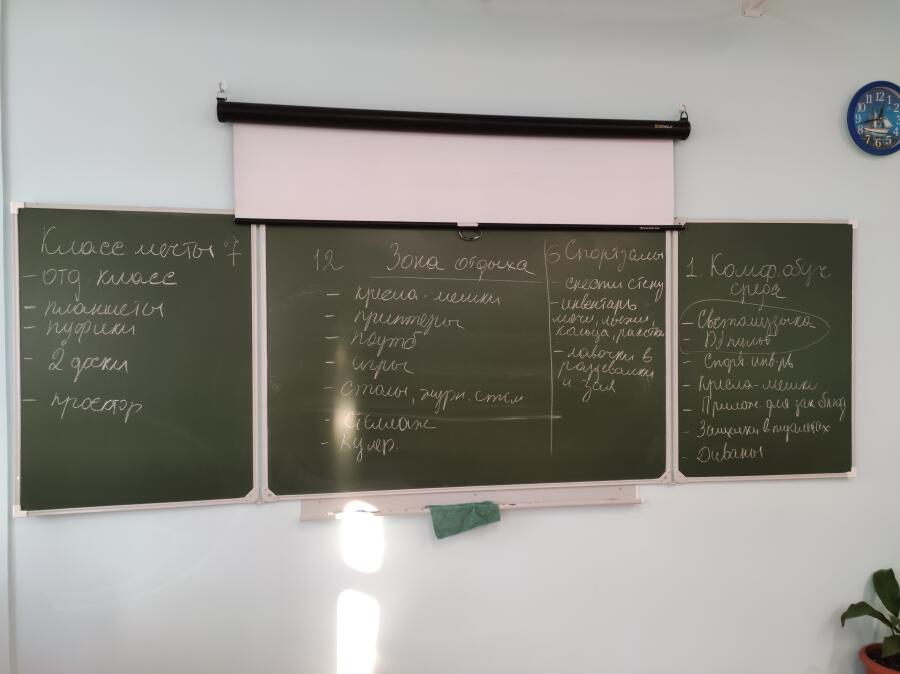 Класс мечты 7
- отд. класс
- планшеты
- пуфики
- 2 доски
- простор
12 Зона отдыха
- кресла-мешки
- принтеры
- ноутб
- игры
- столы, журн. стол
- стеллаж
- кулер.
6 Спортзалы
- снести стену
- инвентарь
мячи, лыжи,
кольца, ракетки
- лавочки в
раздевалки
и зал
1. Комф. обуч.
среда
- Светомузыка
- DJ пульт
- Спорт инвRь
- Кресла-мешки
- Прилож для зак блюд
- Защелки в туалетах
- Диваны
12
1
2
3
4
5
6
7
8
9
10
11